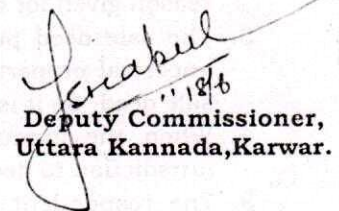 18/6
Deputy Commissioner,
Uttara Kannada,Karwar.